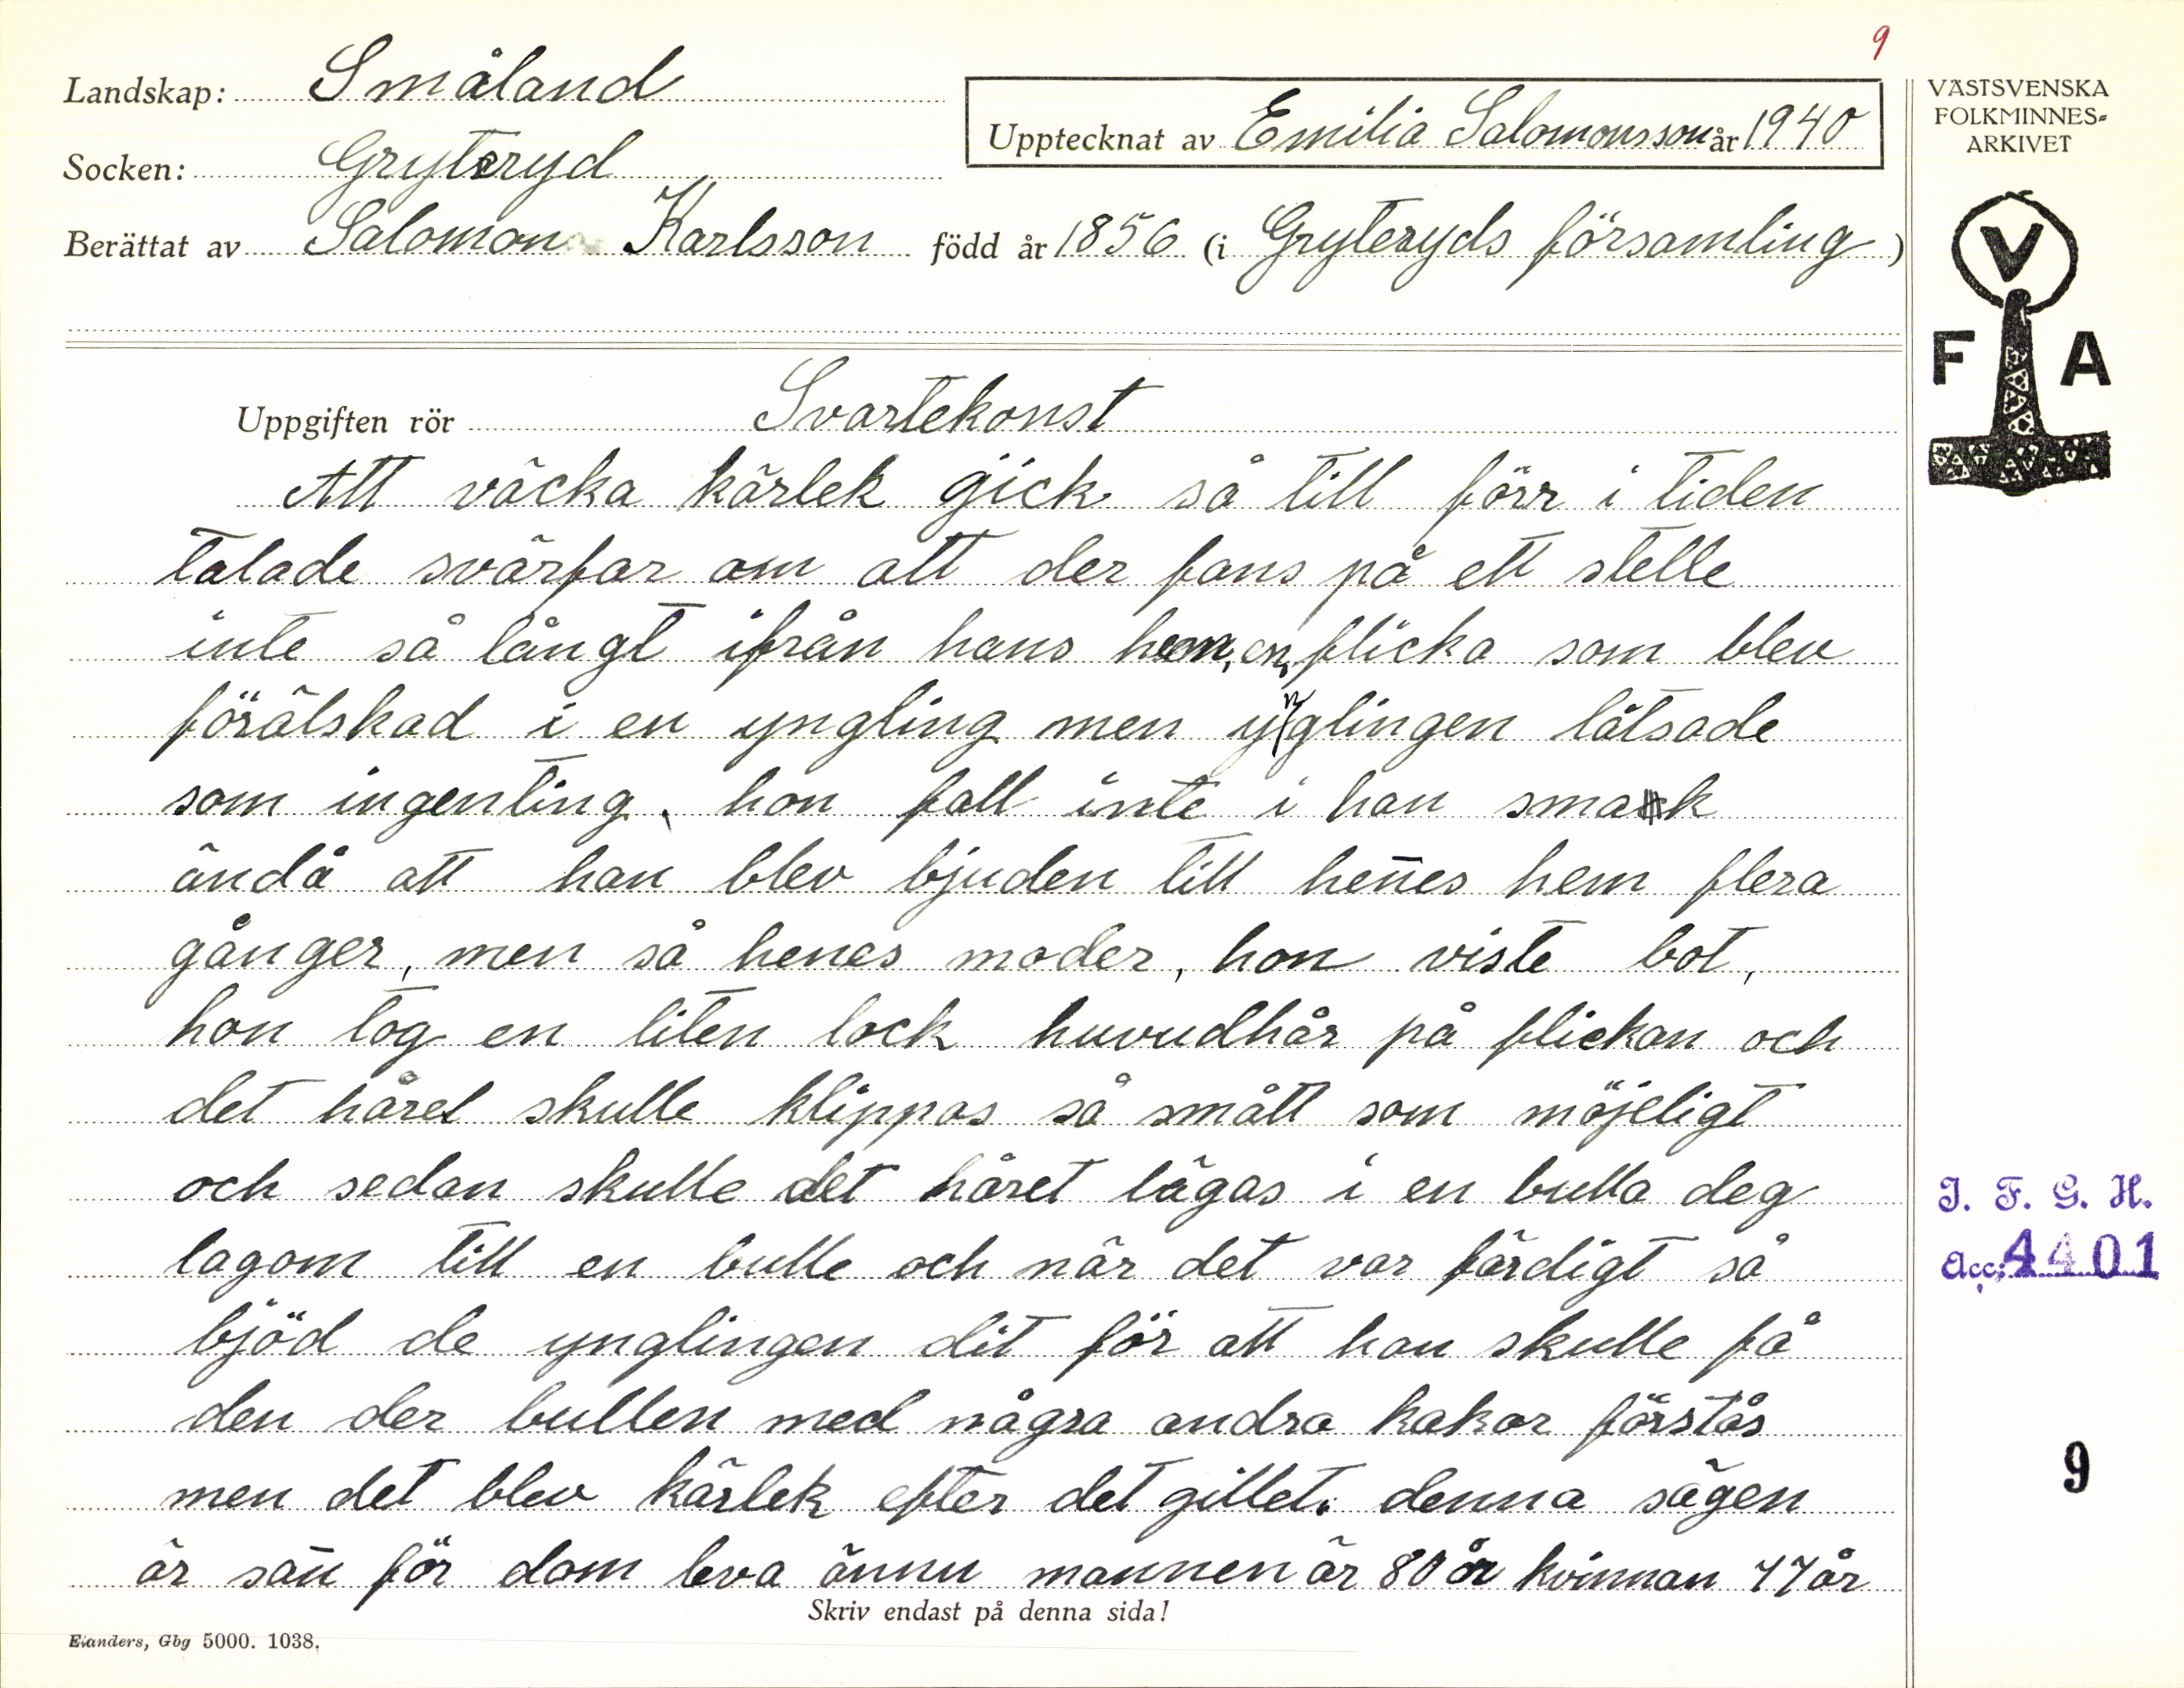 9
Landskap: Småland
Upptecknat av Emilia Salomonsson år 1940
Socken: Gryteryd
Berättat av Salomon Karlsson född år 1856 (i Gryteryds församling)
VÄSTSVENSKA
FOLKMINNES-
ARKIVET
V
F A
Uppgiften rör Svartekonst
Att väcka kärlek gick så till förr i tiden
talade svärfar om att der fans på ett stelle
inte så långt ifrån hans hem, en flicka som blev
förälskad i en yngling men ynglingen låtsade
som ingenting, hon fall inte i han smak
ändå att han blev bjuden till hen̄es hem flera
gånger, men så henes moder, hon viste bot,
hon tog en liten lock huvudhår på flickan och
det håret skulle klippas så smått som möjeligt
och sedan skulle det håret lägas i en bulla deg
lagom till en bulle och när det var färdigt så
bjöd de ynglingen dit för att han skulle få
den der bullen med några andra kakor förstås
men det blev kärlek efter det gillet. denna sägen
är san̄ för dom leva ännu mannen är 80 år kvinnan 77 år
Skriv endast på denna sida!
Elanders, Gbg 5000. 1038.
I. F. G. H.
Acc. 4401
9